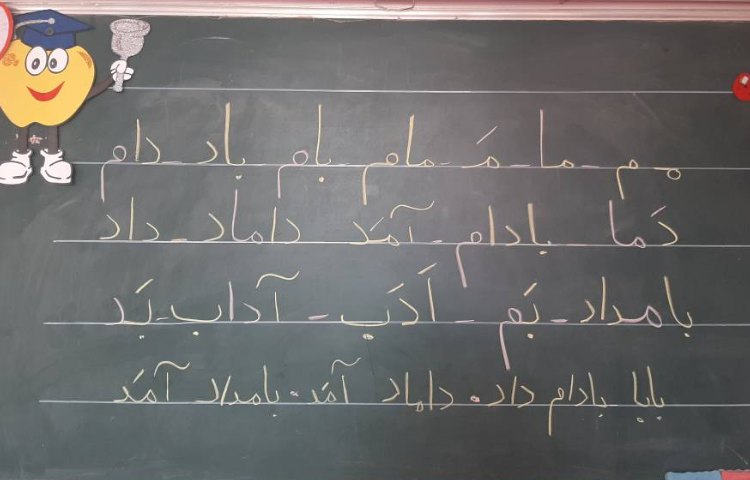 مـ م - ما - مَـ - مام - بام - باد - دام
دَما بادام - آمَد داماد - داد
بامداد - بَم - اَدَب - آداب - بَد
بابا بادام داد. داماد آمَد. بامداد آمَد